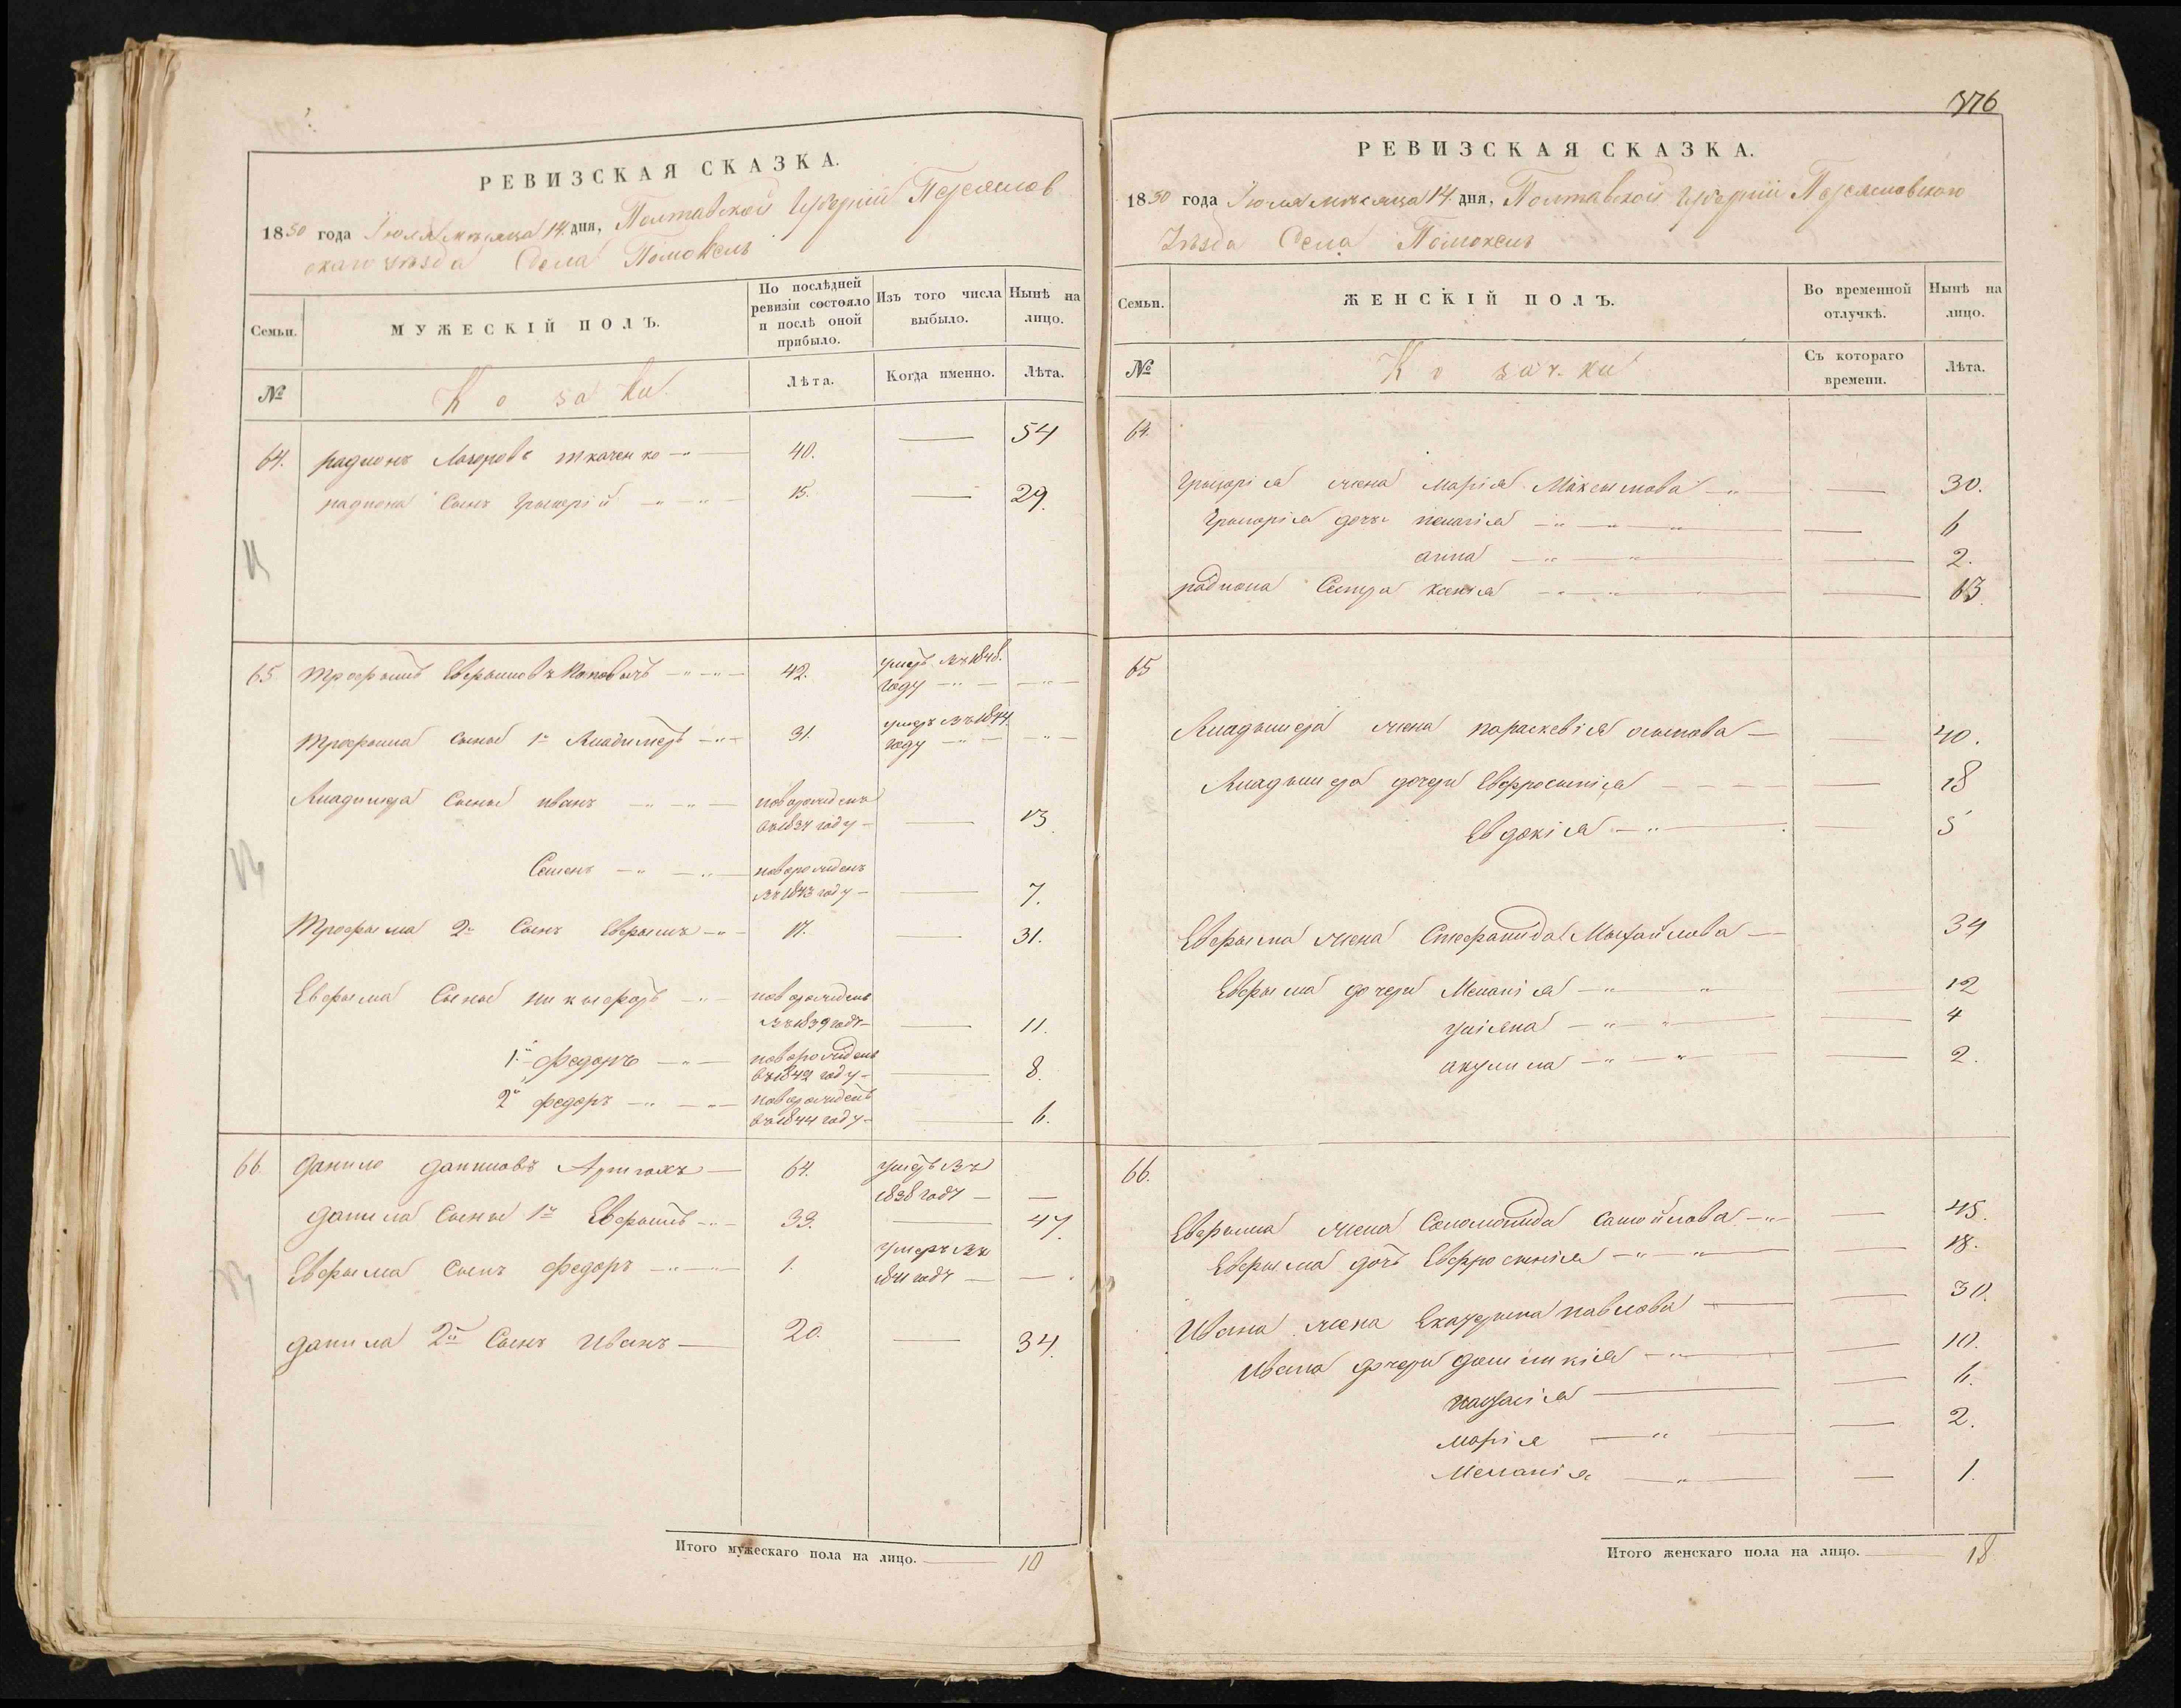 РЕВИЗСКАЯ СКАЗКА.
1850 года Іюля мѣсяца 14 дня, Полтавской Губерніи Переяслов
скаго уѣзда Села Помоклъ
Семьи.
МУЖЕСКІЙ ПОЛЪ.
По послѣдней ревизіи состояло и послѣ оной прибыло.
Изъ того числа выбыло.
Нынѣ на лицо.
№
Козаки
Лѣта.
Когда именно.
Лѣта.
64. радионъ Лазоровъ ткаченко 40. — 54
радиона Сынъ Григорій 15. — 29.
65 трофымъ Евфымовъ 42. умеръ въ 1848.
году
трофыма Сыны 1й Владимеръ 31. умеръ въ 1844
году
Владимера Сыны иванъ новорожденъ
въ 1837 году — 13
Семенъ новорожденъ
въ 1843 году — 7.
трофыма 2й Сынъ Евфымъ 17. — 31.
Евфыма Сыны никыфоръ новорожденъ
въ 1839 году — 11.
1й федоръ новорожденъ
въ 1842 году — 8.
2й федоръ новорожденъ
въ 1844 году — 6.
66 данило даниловъ 64. умеръ въ
1838 году —
данила Сыны 1й Евфымъ 33. — 47.
Евфыма Сынъ федоръ 1. умеръ въ
1841 году —
данила 2й Сынъ Иванъ 20. — 34.
Итого мужескаго пола на лицо. 10
376
РЕВИЗСКАЯ СКАЗКА.
1850 года Іюля мѣсяца 14 дня, Полтавской Губерніи Переясловского
Уѣзда Села Помоклъ
Семьи.
ЖЕНСКІЙ ПОЛЪ.
Во временной отлучкѣ.
Нынѣ на лицо.
№
Козачки
Съ котораго времени.
Лѣта.
64.
Григорія жена марія Максымова — 30.
Григорія дочь пелагія — 6
анна — 2.
радиона Сестра ксенія — 13.
65
Владымера жена параскевія осыпова — 40.
Владымера дочери Евфросынія — 18
Евдокія — 5
Евфыма жена Стефанида Михайлова 34
Евфыма дочери Меланія — 12
уліяна — 4
акулина — 2.
66.
Евфыма жена Соломонида Самойлова — 45.
Евфыма дочь Евфросынія — 18.
Ивана жена Екатерина павлова — 30.
Ивана дочери домникія — 10.
— 6.
марія — 2.
Меланія — 1.
Итого женскаго пола на лицо. 18